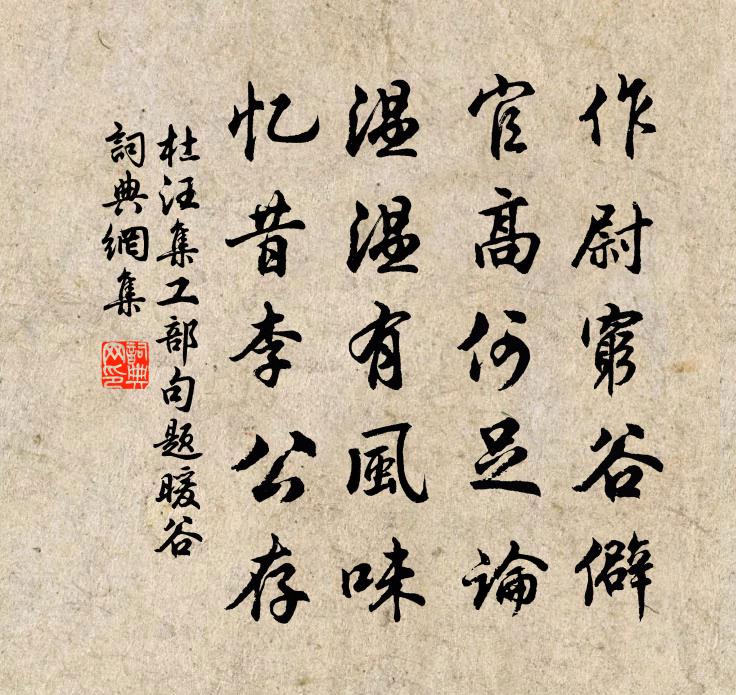 作尉窮谷僻
官高何足論
温温有風味
忆昔李公存
杜汪集工部句题暖谷
詞典網集
詞典网印